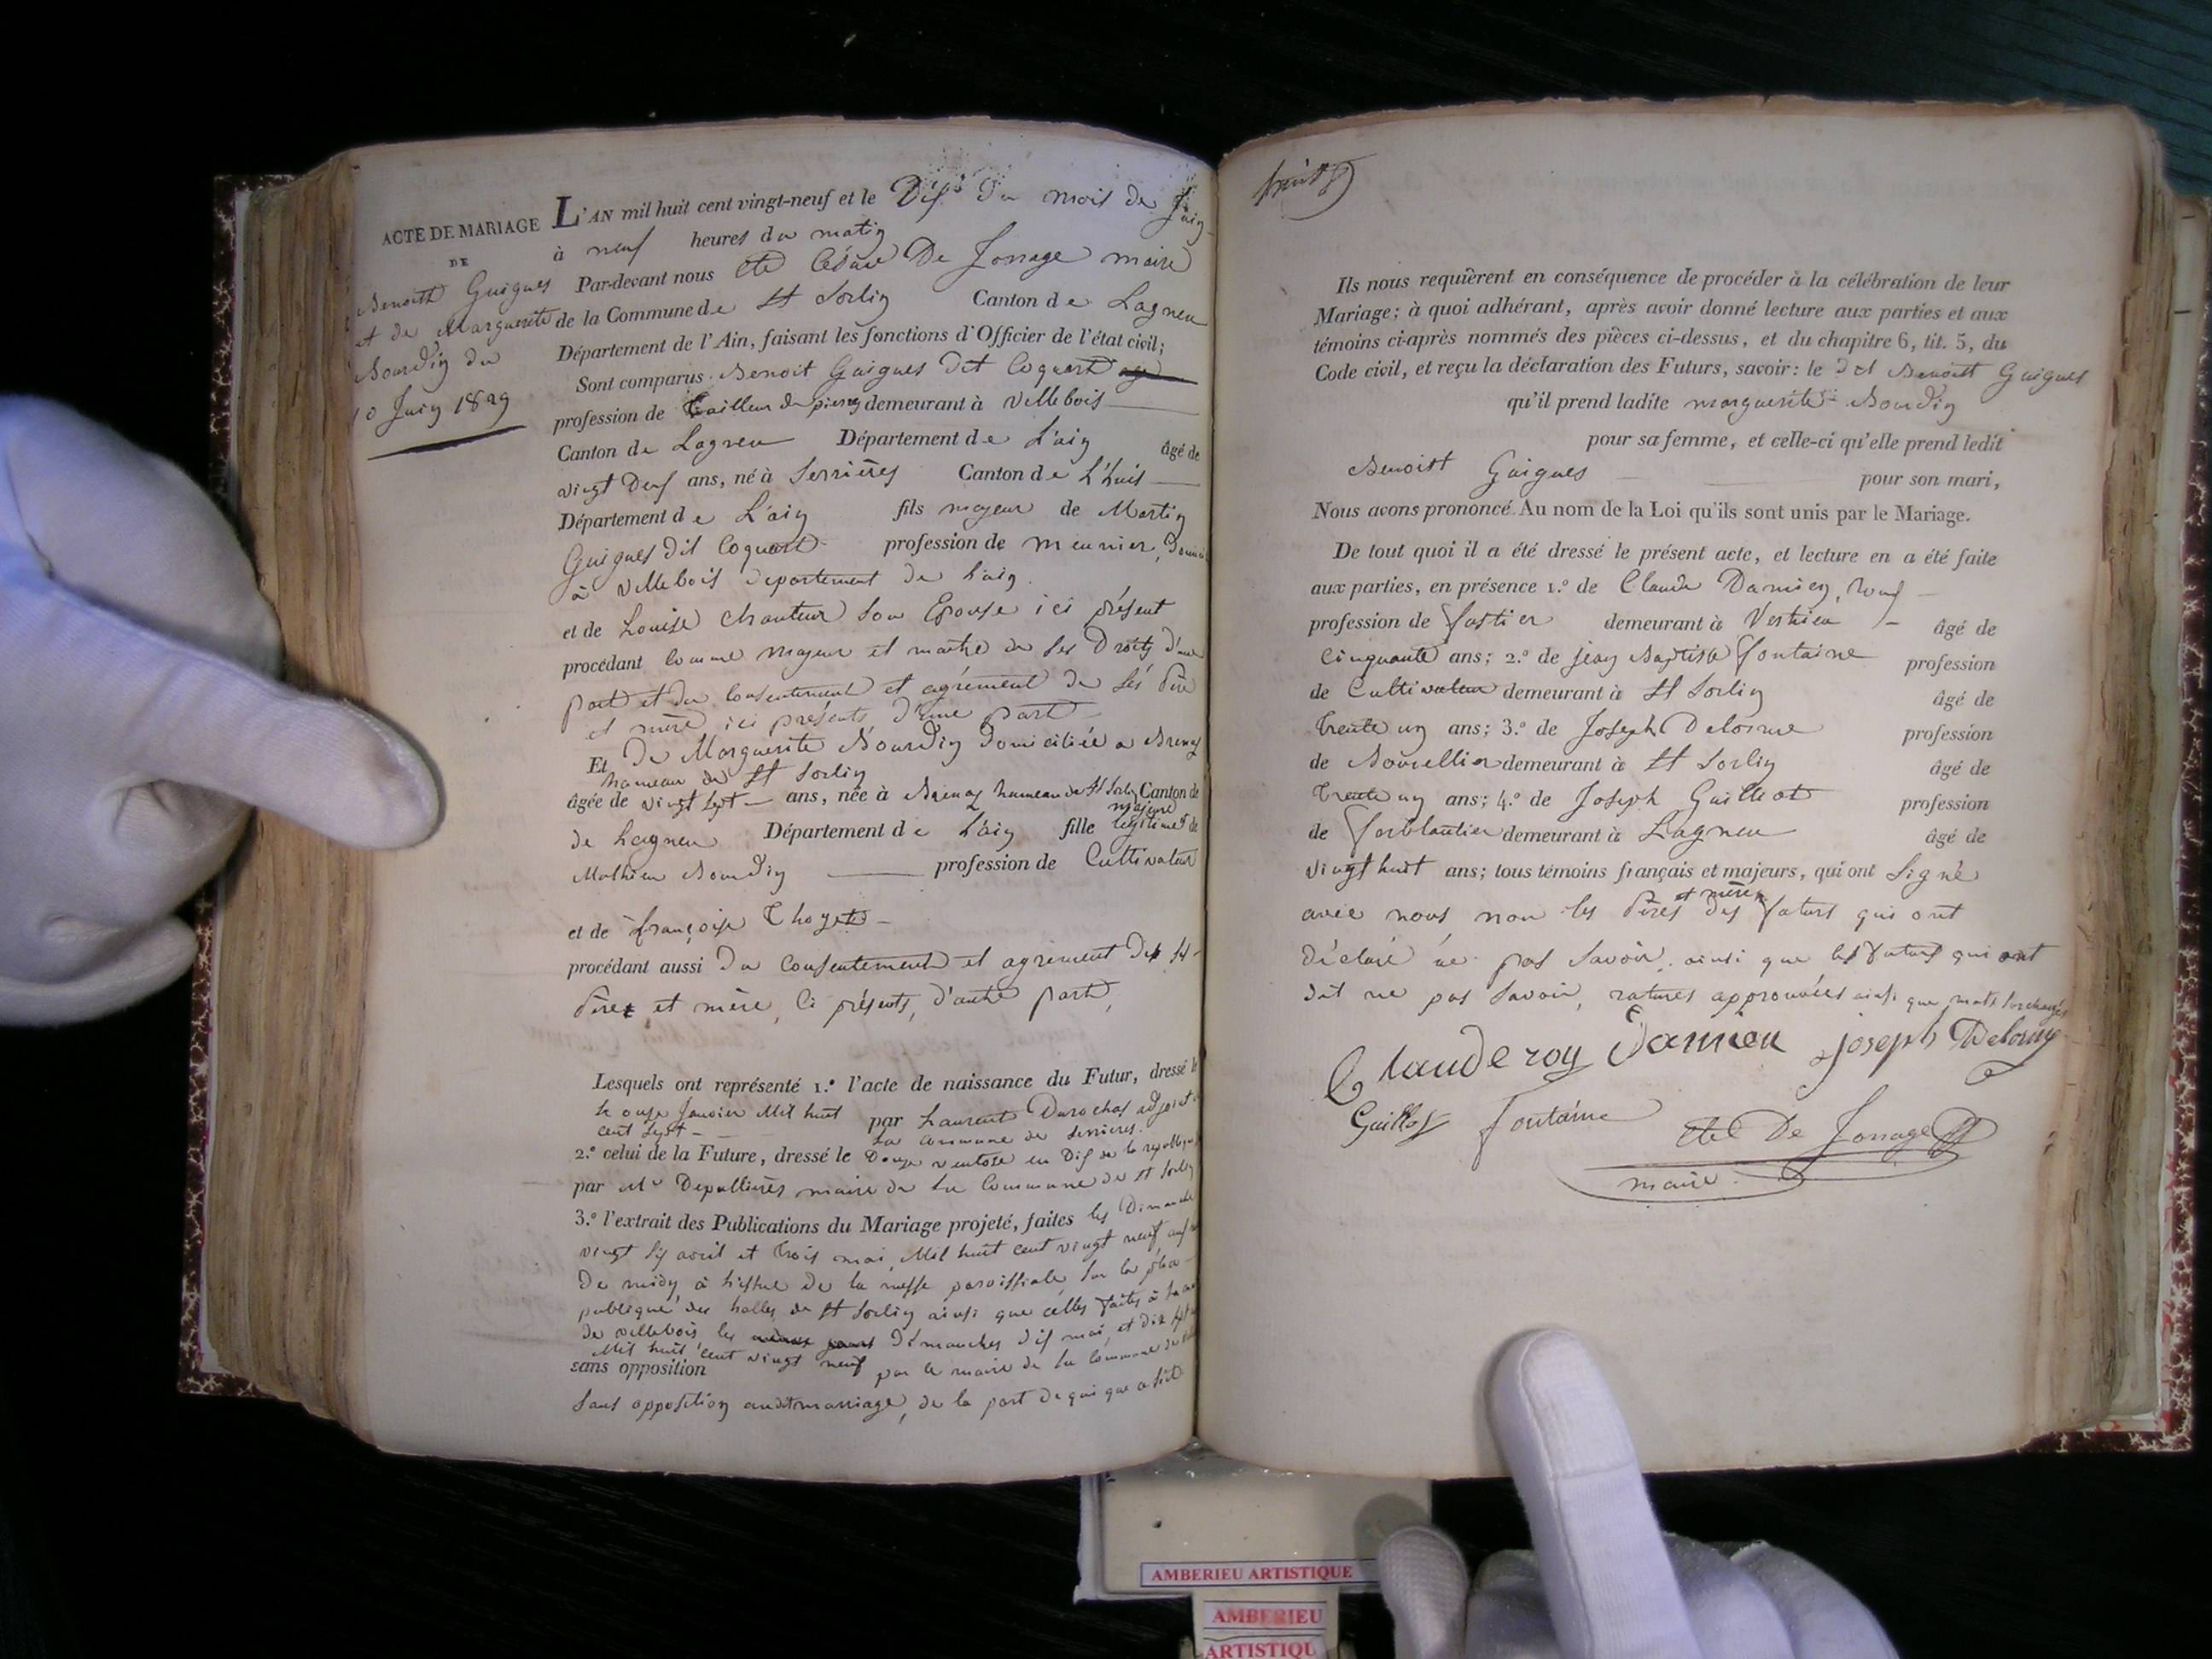 ACTE DE MARIAGE
DE
Benoitt Guigues
et de Marguerite
Bourdin du
10 Juin 1829
L'AN mil huit cent vingt-neuf et le Dix du mois de Juin
à neuf heures du matin
Par-devant nous César De Jonage maire
de la Commune de St Sorlin Canton de Lagneu
Département de l'Ain, faisant les fonctions d'Officier de l'état civil;
Sont comparus Benoit Guigues dit Coquart
profession de tailleur de pierre demeurant à Villebois
Canton de Lagneu Département de L'ain âgé de
vingt Deux ans, né à Serrières Canton de L'huis
Département de L'ain fils majeur de Martin
Guigues dit Coquart profession de meunier,
à Villebois département de L'ain
et de Louise Chanteur Son Epouse ici présent
procédant comme majeur et maitre de ses Droits d'une
part et du consentement et agrément de ses Père
et mère ici présents, d'une part
Et De Marguerite Bourdin Domiciliée a Brenaz
hameau de St Sorlin
âgée de vingt sept ans, née à Brenaz hameau de St Sorlin Canton de
majeure
de Lagneu Département de L'ain fille légitime de
Mathieu Bourdin profession de Cultivateur
et de françoise Thoyet
procédant aussi du consentement et agrément De
Père et mère, ci présents, d'autre part,
Lesquels ont représenté 1.º l'acte de naissance du Futur, dressé le
le onze Janvier Mil huit par Laurent Durochat adjoint
cent sept la commune de Serrières.
2.º celui de la Future, dressé le Douze ventose en Dix de la
par Mr Depullinès maire de la Commune de St Sorlin
3.º l'extrait des Publications du Mariage projeté, faites les Dimanche
vingt six avril et trois mai, Mil huit cent vingt neuf
De midy, à l'issue de la messe paroissiale, sur la place
publique des halles de St Sorlin ainsi que celles faites à
de villebois, les Dimanches dix mai, et dix sept
Mil huit cent vingt neuf par le maire de la Commune de
sans opposition
Sans opposition audit mariage, de la part de qui que ce soit
Ils nous requièrent en conséquence de procéder à la célébration de leur
Mariage; à quoi adhérant, après avoir donné lecture aux parties et aux
témoins ci-après nommés des pièces ci-dessus, et du chapitre 6, tit. 5, du
Code civil, et reçu la déclaration des Futurs, savoir: le dit Benoitt Guigues
qu'il prend ladite marguerite Bourdin
pour sa femme, et celle-ci qu'elle prend ledit
Benoitt Guigues pour son mari,
Nous avons prononcé Au nom de la Loi qu'ils sont unis par le Mariage.
De tout quoi il a été dressé le présent acte, et lecture en a été faite
aux parties, en présence 1.º de Claude Damien,
profession de demeurant à Vertrieu âgé de
Cinquante ans; 2.º de jean Baptiste fontaine profession
de Cultivateur demeurant à St Sorlin âgé de
trente un ans; 3.º de Joseph Delorme profession
de Bourellier demeurant à St Sorlin âgé de
trente un ans; 4.º de Joseph Guillot profession
de ferblantier demeurant à Lagneu âgé de
vingt huit ans; tous témoins français et majeurs, qui ont Signé
et mères
avec nous non les Pères des futurs qui ont
déclaré ne pas Savoir, ainsi que les futurs qui ont
dit ne pas Savoir, ratures approuvées ainsi que mots surchargés
Claude roy Damien joseph Delorme
Guillot fontaine De Jonage
maire
AMBERIEU ARTISTIQUE
AMBERIEU
ARTISTIQU